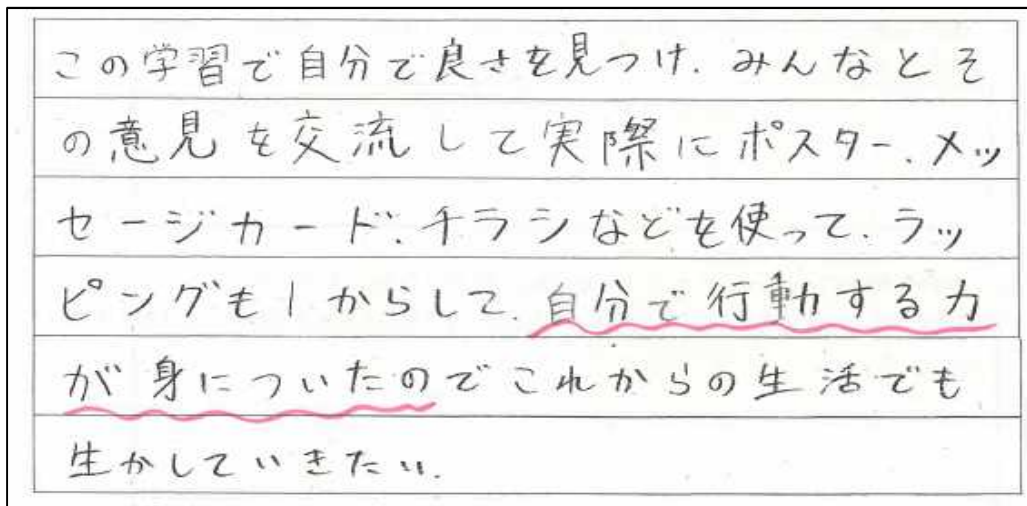 この学習で自分で良さを見つけ、みんなとそ
の意見を交流して実際にポスター、メッ
セージカード、チラシなどを使って、ラッ
ピングも1からして、自分で行動する力
が身についたのでこれからの生活でも
生かしていきたい。